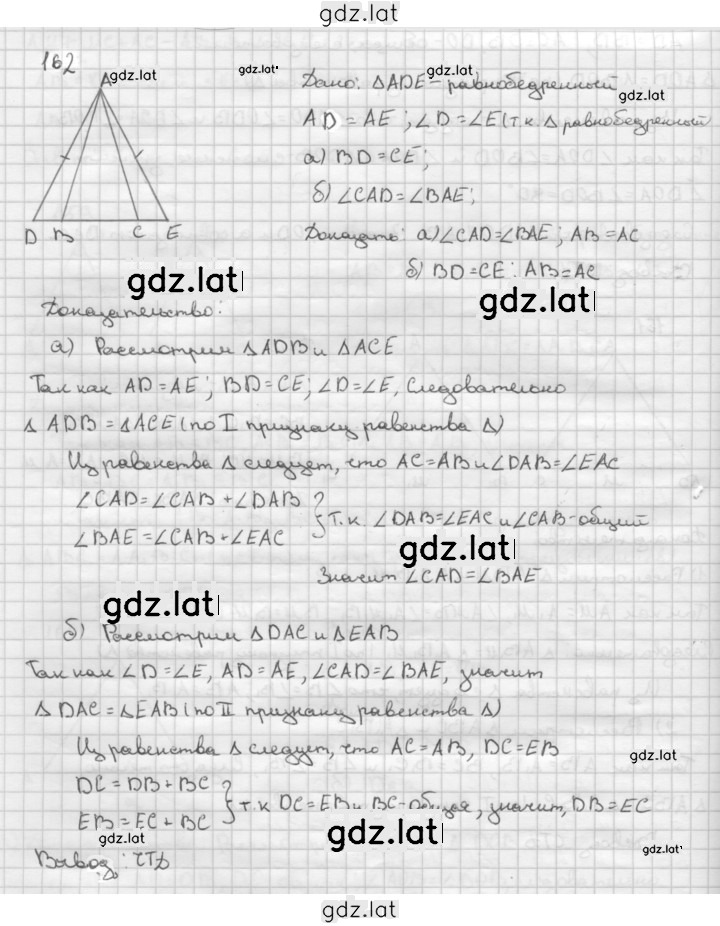 gdz.lat
162
A gdz.lat
gdz.lat
gdz.lat
Дано: ΔADE – равнобедренный
gdz.lat
AD = AE ; ∠D = ∠E (т.к. Δ равнобедренный
а) BD = CE;
б) ∠CAD = ∠BAE;
D B C E
Доказать: а) ∠CAD = ∠BAE ; AB = AC
б) BD = CE : AB = AC
gdz.lat
gdz.lat
Доказательство:
а) Рассмотрим ΔADB и ΔACE
Так как AD = AE ; BD = CE ; ∠D = ∠E, следовательно
Δ ADB = ΔACE (по I признаку равенства Δ)
Из равенства Δ следует, что AC = AB и ∠DAB = ∠EAC
∠CAD = ∠CAB + ∠DAB
∠BAE = ∠CAB + ∠EAC
} т.к ∠DAB = ∠EAC и ∠CAB – общий
gdz.lat
Значит ∠CAD = ∠BAE
gdz.lat
б) Рассмотрим ΔDAC и ΔEAB
Так как ∠D = ∠E, AD = AE, ∠CAD = ∠BAE, значит
Δ DAC = ΔEAB (по II признаку равенства Δ)
Из равенства Δ следует, что AC = AB, DC = EB
gdz.lat
DC = DB + BC
EB = EC + BC
} т.к DC = EB и BC – общая, значит, DB = EC
gdz.lat
gdz.lat
gdz.lat
Вывод: чтд
gdz.lat